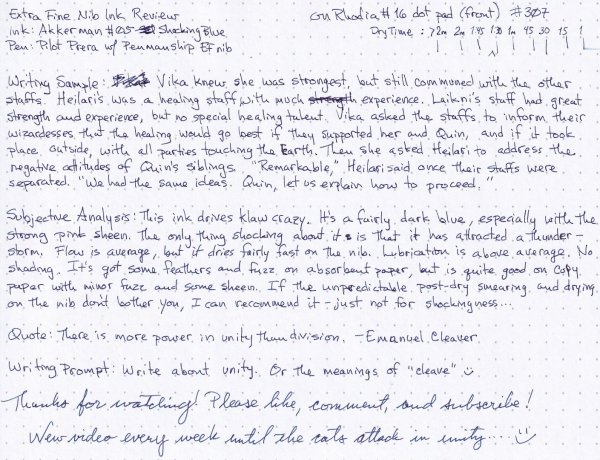 Extra Fine Nib Ink Review on Rhodia #16 dot pad (front) #307
ink: Akkerman #05 Shocking Blue Dry Time: >2m 2m 1:45 1:30 1m 45 30 15 1
Pen: Pilot Prera w/ Penmanship EF nib
Writing Sample: Vika knew she was strongest, but still communed with the other
staffs. Heilari's was a healing staff with much strength experience. Laikni's staff had great
strength and experience, but no special healing talent. Vika asked the staffs to inform their
wizardesses that the healing would go best if they supported her and Quin, and if it took
place outside, with all parties touching the Earth. Then she asked Heilari to address the
negative attitudes of Quin's siblings. "Remarkable," Heilari said once their staffs were
separated. "We had the same ideas. Quin, let us explain how to proceed."
Subjective Analysis: This ink drives klaw crazy. It's a fairly dark blue, especially with the
strong pink sheen. The only thing shocking about it is that it has attracted a thunder-
storm. Flow is average, but it dries fairly fast on the nib. Lubrication is above average. No
shading. It's got some feathers and fuzz on absorbent paper, but is quite good on copy
paper with minor fuzz and some sheen. If the unpredictable post-dry smearing and drying
on the nib don't bother you, I can recommend it - just not for shockingness...
Quote: There is more power in unity than division. - Emanuel Cleaver
Writing Prompt: Write about unity. Or the meanings of "cleave"
Thanks for watching! Please like, comment, and subscribe!
New video every week until the cats attack in unity....